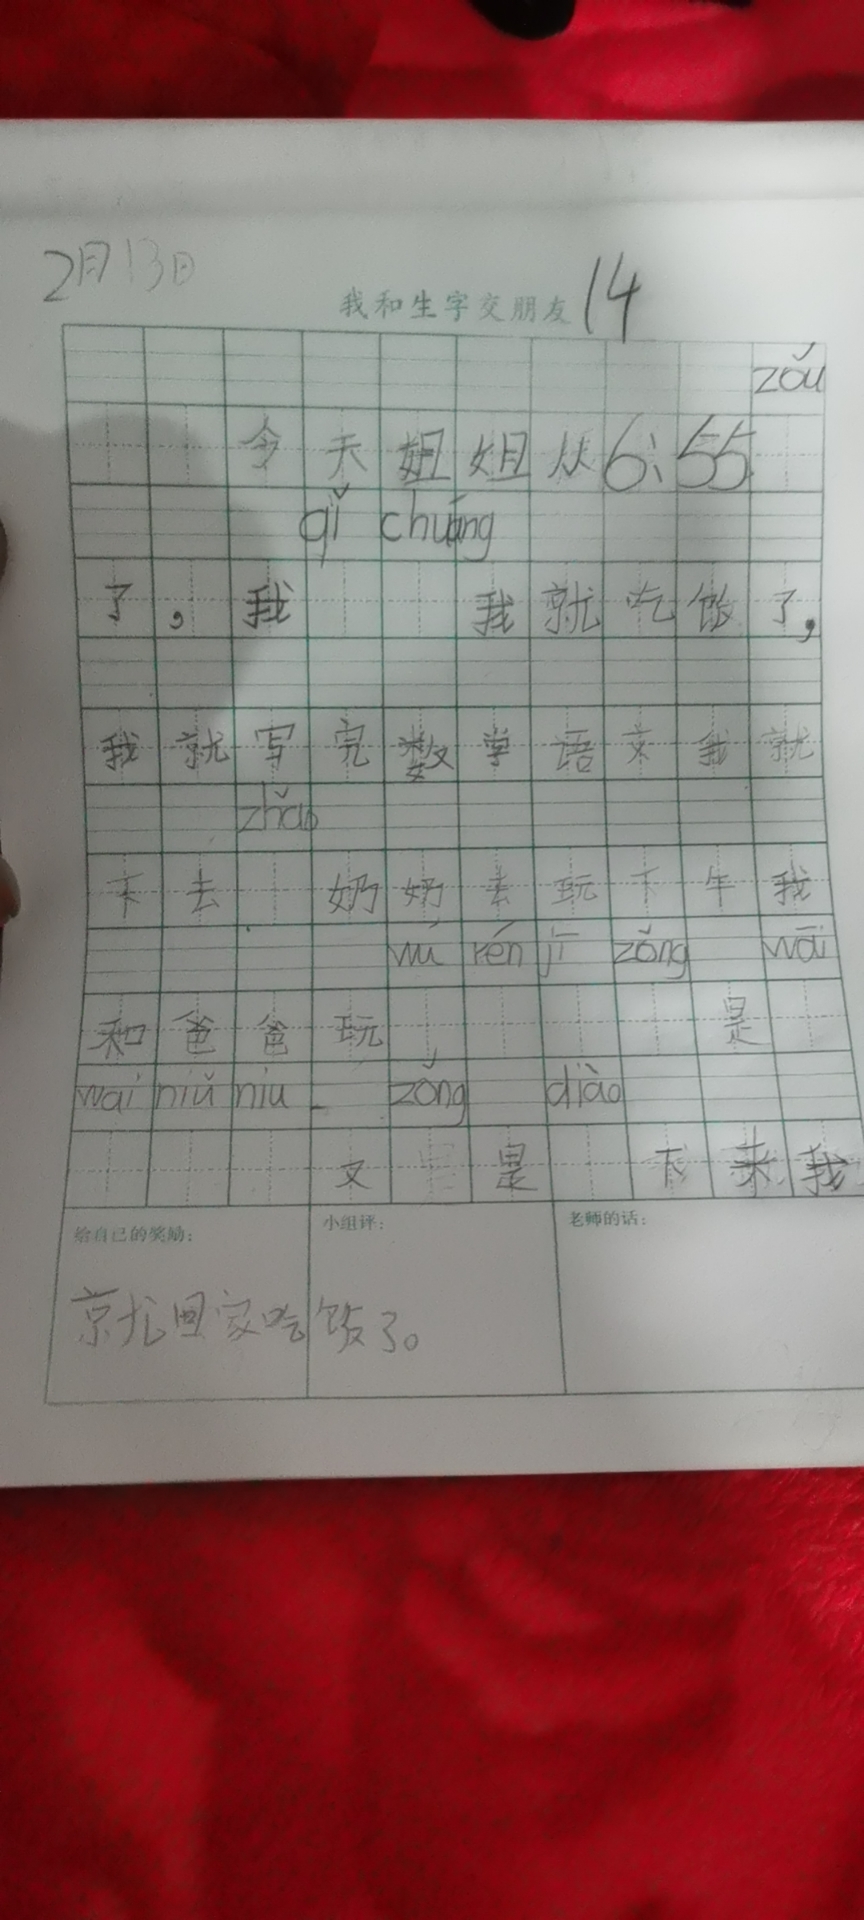 2月13日
我和生字交朋友 14
zǒu
今天姐姐从6:55
qǐ chuáng
了，我 我就吃饭了，
我就写完数学语文我就
zhǎo
下去 奶奶去玩下午我
wú rén jī zǒng wāi
和爸爸玩 是
wai niǔ niu zǒng diào
又 是 下来我
给自己的奖励： 小组评： 老师的话：
就回家吃饭了。